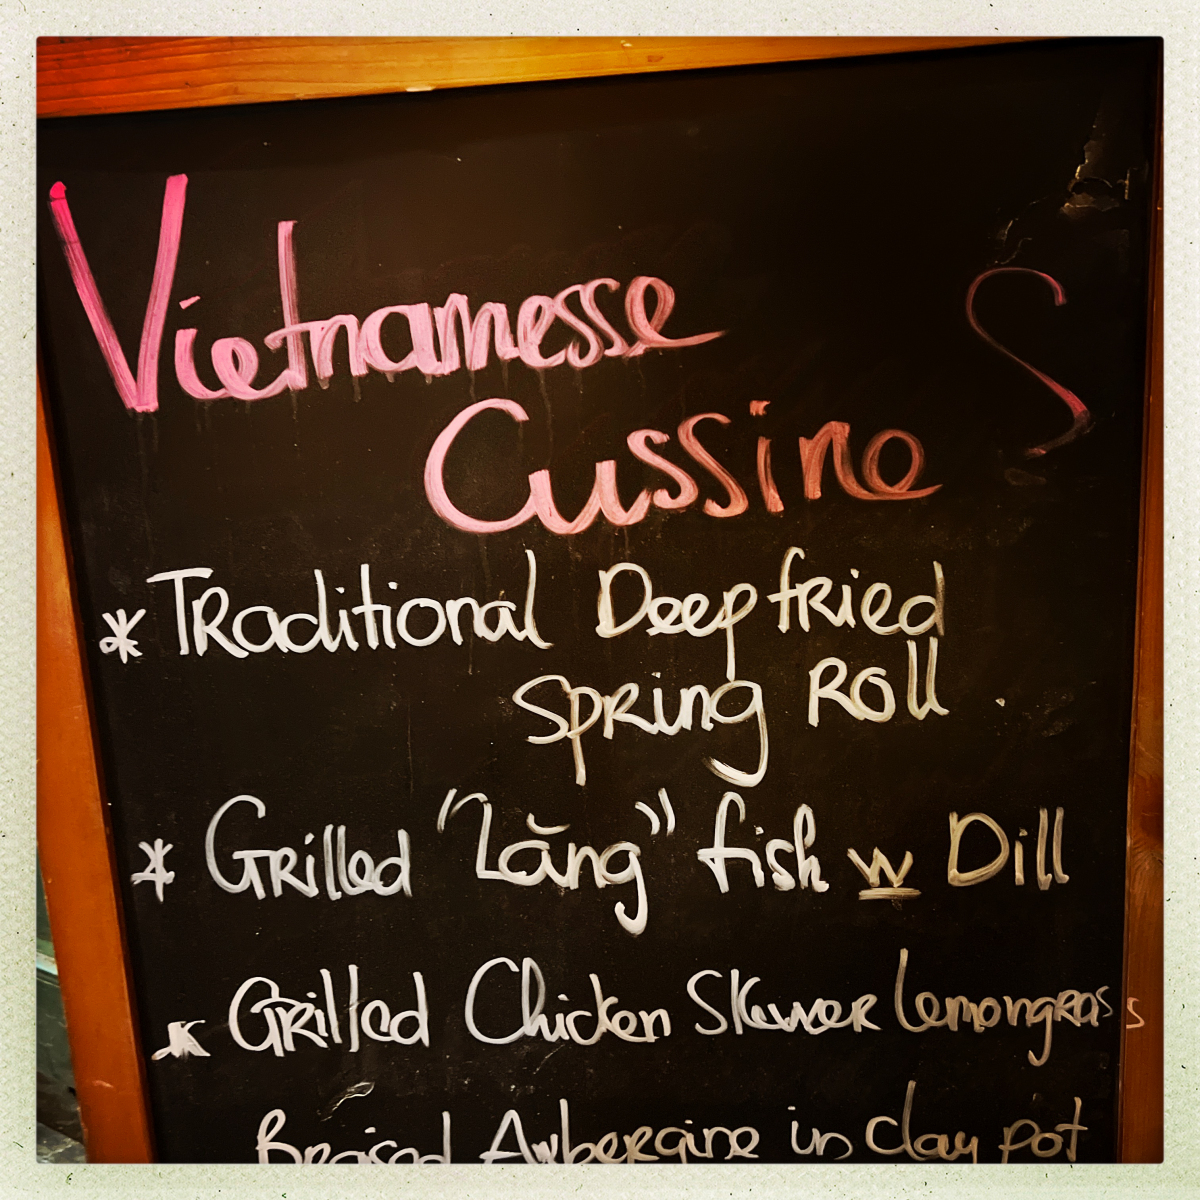 Vietnamesse S
Cussine
* Traditional Deep fried
Spring Roll .
* Grilled "Lăng" fish w Dill
* Grilled Chicken Skewer Lemongrass
Braised Aubergine in clay pot